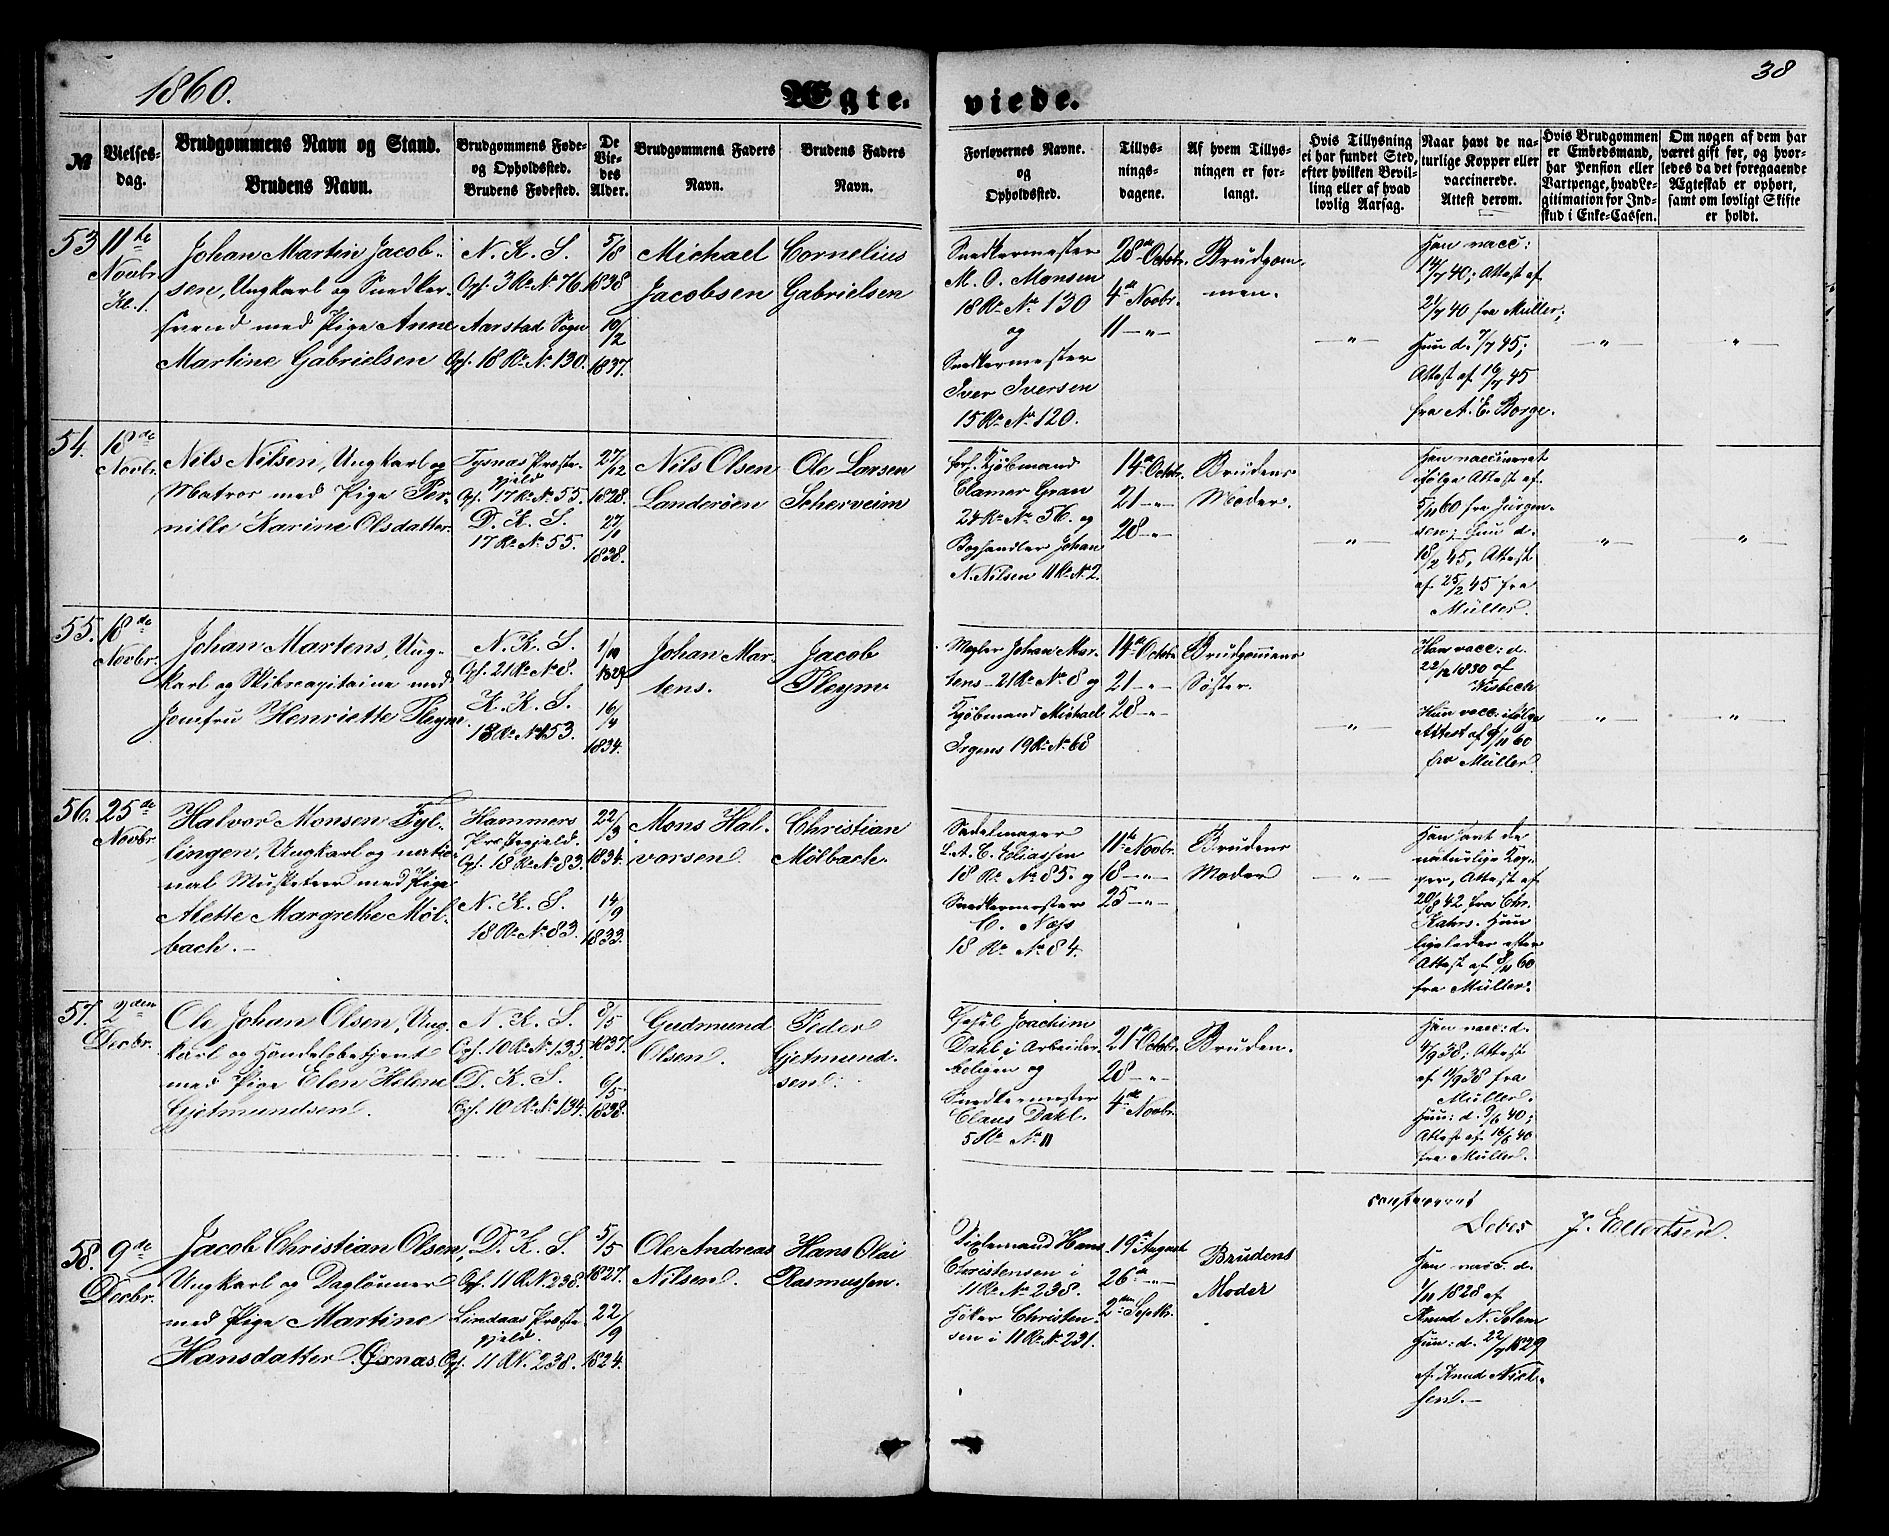 1860.
Ægte-
viede.
38
№
Vielses-
dag.
Brudgommens Navn og Stand.
Brudens Navn.
Brudgommens Føde-
og Opholdsted.
Brudens Fødested.
De
Vie-
des
Alder.
Brudgommens Faders
Navn.
Brudens Faders
Navn.
Forlovernes Navne.
og
Opholdssted.
Tillys-
nings-
dagene.
Af hvem Tillys-
ningen er for-
langt.
Hvis Tillysning
ei har fundet Sted,
efter hvilken Bevil-
ling eller af hvad
lovlig Aarsag.
Naar havt de na-
turlige Kopper eller
vaccinerede.
Attest derom.
Hvis Brudgommen
er Embedsmand,
har Pension eller
Vartpenge, hvad Le-
gitimation for Ind-
skud i Enke-Cassen.
Om nogen af dem har
været gift før, og hvor-
ledes da det foregaaende
Ægteskab er ophørt,
samt om lovligt Skifte
er holdt.
53
11te
Novbr.
Kl. 1.
Johan Martin Jacob-
sen, Ungkarl og Snedker-
svend med Pige Anne
Martine Gabrielsen
N. K. S.
Oph. 3 Rd. No 76.
Aarstad Sogn
Oph. 18 Rd. No. 130.
5/8
1838
10/2
1837.
Michael
Jacobsen
Cornelius
Gabrielsen
Snedkermester
M. O. Monsen
18 Rd. No 130
og
Snedkermester
Iver Iversen
15 Rd. No 120.
28de Octobr.
4de Novbr.
11 — " —
Brudgom-
men.
— " —
Han vacc:
14/7 40; Attest af
21/7 40 fra Müller;
Hun d. 7/7 45;
Attest af 16/7 45
fra A. E. Borge.
— " —
— " —
54.
18de
Novbr.
Nils Nilsen, Ungkarl og
Matros med Pige Per-
nille Karine Olsdatter
Tysnæs Præste-
gjeld
Oph. 17 Rd. No. 55.
D. K. S.
17 Rd. No. 55.
27/12
1828.
1838.
Nils Olsen
Landerøen
Ole Larsen
Scherveim
Kjøbmand
Clamer Gran
24 Rd. No 56. og
Boghandler Johan
N. Nilsen 11 Rd. No 2.
14de Octobr.
21 — " —
28 — " —
Brudens
Moder.
— " —
Han vaccineret
ifølge Attest af
5/11 60 fra Jürgen-
sen; Hun d.
18/2 45, Attest
af 25/2 45 fra
Müller.
— " —
— " —
55.
18de
Novbr.
Johan Martens, Ung-
karl og Skibscapitaine med
Jomfru Henriette Pleym.
N. K. S.
Oph. 21 Rd. No 8.
K. K. S.
18 Rd. No 153.
1829
16/4
1834.
Johan Mar-
tens.
Jacob
Pleym
Mægler Johan Mar-
tens – 21 Rd. No 8 og
Kjøbmand Michael
Irgens 19 Rd. No 68
14de Octobr.
21 — " —
28 — " —
Brudgommens
Søster.
— " —
Han vacc: d.
22/12 1830 af
Wisbech
Hun vacc: ifølge
Attest af 9/11 60
fra Müller.
— " —
— " —
56.
25de
Novbr.
Halvor Monsen Fyl-
lingen, Ungkarl og natio-
nal Musketeer med Pige
Mette Margrethe Møl-
bach. —
Hammers
Præstegjeld.
Oph. 18 Rd. No 83.
N. K. S.
18 Rd. No. 83.
22/3
1834.
14/9
1833.
Mons Hal-
vorsen.
Christian
Mølbach.
Sadelmager
L. A. C. Eliassen
18 Rd. No 85. og
Snedkermester
C. Næss
18 Rd. No 84.
11te Novbr.
18 — " —
25 — " —
Brudens
Moder
— " —
Han havt de
naturlige Kop-
per, Attest af
20/8 42 fra Chr.
Kahrs. Hun
ligeledes efter
Attest af 8/11 60
fra Müller.
57.
2den
Decbr.
Ole Johan Olsen, Ung-
karl og Handelsbetjent
med Pige Elen Helene
Gjetmundsen.
N. K. S.
Oph. 10 Rd. No 135.
D. K. S.
Oph. 10 Rd. No 134.
8/5
1837.
6/5
1838.
Gudmund
Olsen.
Peder
Gjetmund-
sen.
Joachim
Dahl i Arbeider-
boligen og
Snedkermester
Claus Dahl.
5 Rd. No 11
21de Octobr.
28 — " —
4de Novbr.
Bruden.
Han vacc: d.
4/9 38; Attest
af 11/9 38 fra
Müller.
Hun: d. 9/6 40;
Attest af 16/6 40
fra Müller.
confereret
Debes
J. Ellertsen.
58.
9de
Decbr.
Jacob Christian Olsen,
Ungkarl og Daglønner
med Pige Martine
Hansdatter Oxnæs.
D. K. S.
Oph. 11 R. No. 238.
Lindaas Præste-
gjeld.
Oph. 11 R. No. 238.
5/5
1827.
22/9
1824.
Ole Andreas
Nilsen.
Hans Olai
Rasmussen.
Hans
Christensen i
11 Rd. No 238.
Høker Christen-
sen i 11 Rd. No 231.
19de August
26de — " —
2den Septbr.
Brudens
Moder
Han vacc. d.
1/11 1828 af
Knud N. Solem
Hun: d. 22/7 1829
af Knud Niel-
sen. —